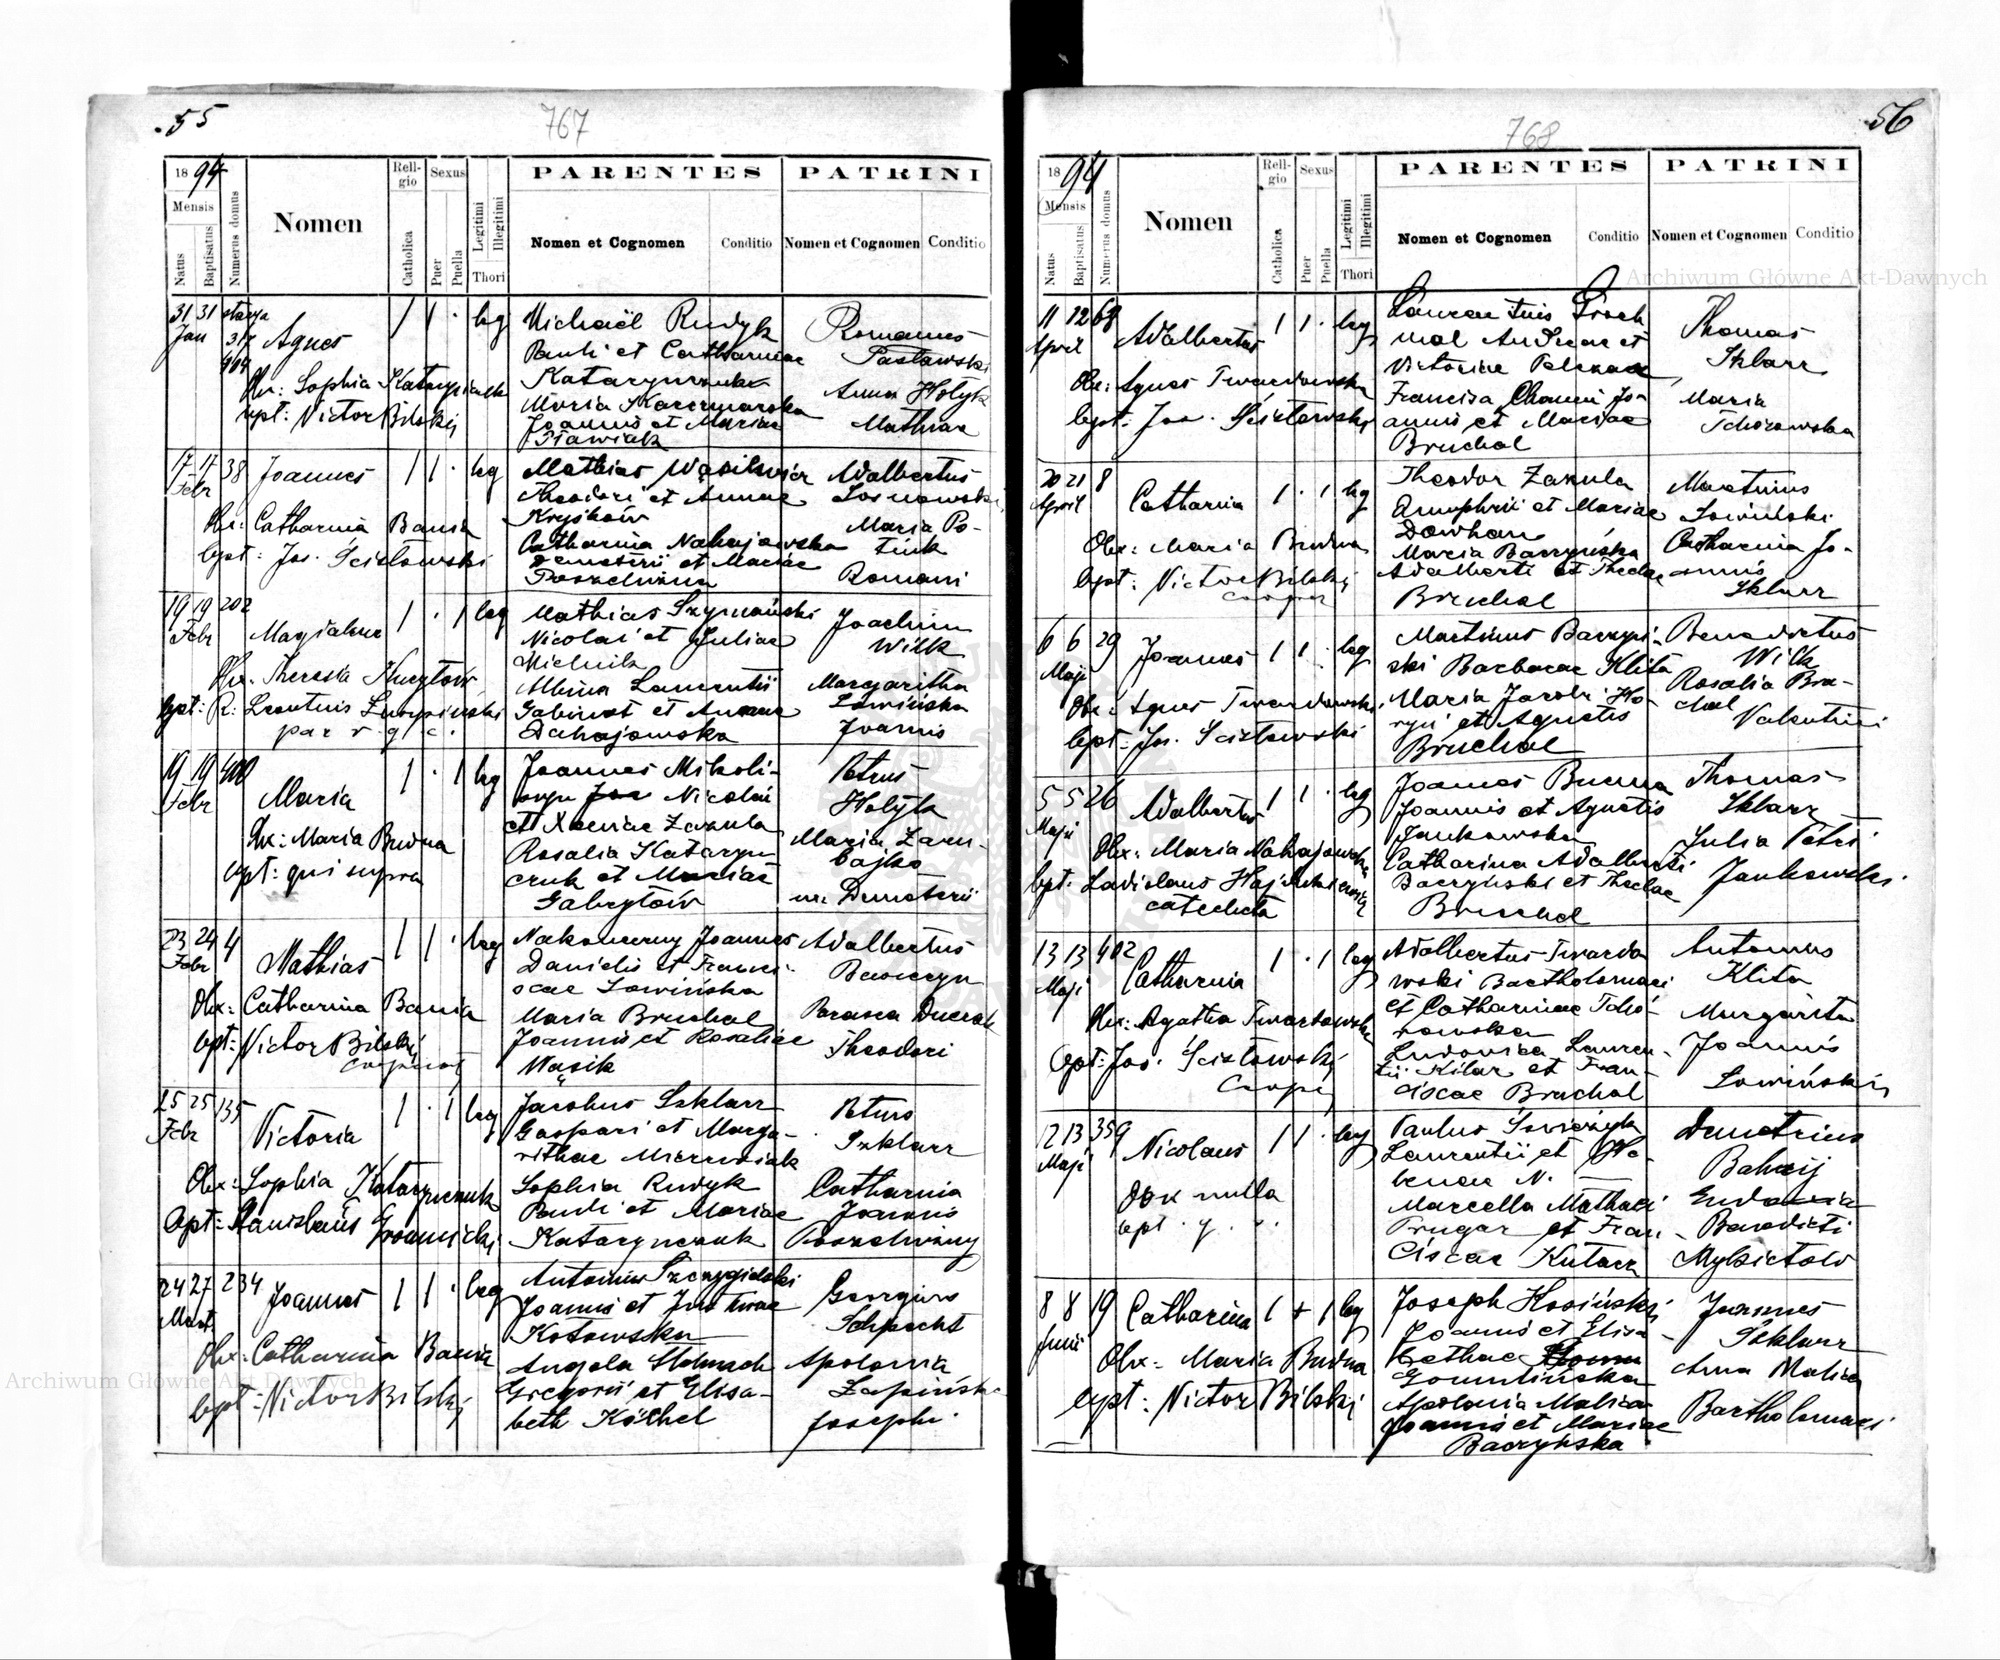 55
767
1894
Mensis
Natus
Baptisatus
Numerus domus
Nomen
Religio
Catholica
Sexus
Puer
Puella
Legitimi
Illegitimi
Thori
PARENTES
Nomen et Cognomen
Conditio
PATRINI
Nomen et Cognomen
Conditio
31 31
Jan
Agnes
1 1 . leg
Michaël Rudyk
Pauli et Catharinae
Maria Kaczmarska
Joannis et Mariae
Romanus
Pasławski
Anna Hołyk
Mathiae
Obx: Sophia
bpt: Victor Bilski
17 17 38
Febr
Joannes
1 1 . leg
Mathias
Theodori et Annae
Kryśków
Catharina Nahajowska
Demetrii et Mariae
Adalbertus
Sosnowski
Maria Po-
Romani
Obx: Catharina Bania
bpt: Jos. Ścisłowski
19 19 202
Febr
Magdalena
1 . 1 leg
Mathias Szymański
Nicolai et Juliae
Mielnik
Albina Laurentii
et Annae
Dahajowska
Joachim
Wilk
Margaritha
Łowińska
Joannis
Obx: Theresia
bpt: R:
19 19 400
Febr
Maria
1 . 1 leg
Joannes Mikoli-
Nicolai
et Xeniae Zakula
Rosalia Kataryn-
czuk et Mariae
Gabrylów
Petrus
Hołyk
Maria Zaru-
bajko
ux. Demetrii
Obx: Maria Budna
bpt: qui supra
23 24 4
Febr
Mathias
1 1 . leg
Nakoneczny Joannes
Danielis et Franci-
scae Łowińska
Maria Bruchal
Joannis et Rosaliae
Wąsik
Adalbertus
Parasca
Theodori
Obx: Catharina Bania
bpt: Victor Bilski
25 25 135
Febr
Victoria
1 . 1 leg
Jacobus Szklarz
Gaspari et Marga-
rithae
Sophia Rudyk
Pauli et Mariae
Katarynczuk
Petrus
Szklarz
Catharina
Joannis
Obx: Sophia Katarynczuk
bpt: Stanislaus Gromnicki
24 27 234
Mart
Joannes
1 1 . leg
Antonius Szczygielski
Joannis et Justinae
Kotowska
Angela
Gregorii et Elisa-
beth Köchel
Georgius
Schpecht
Apolonia
Łapińska
Josephi
Obx: Catharina Bania
bpt: Victor Bilski
56
768
1894
Mensis
Natus
Baptisatus
Numerus domus
Nomen
Religio
Catholica
Sexus
Puer
Puella
Legitimi
Illegitimi
Thori
PARENTES
Nomen et Cognomen
Conditio
PATRINI
Nomen et Cognomen
Conditio
Archiwum Główne Akt Dawnych
11 12 68
April
Adalbertus
1 1 . leg
Laurentius Groch
mal Andreae et
Victoriae
Francisca Joannis
et Mariae
Bruchal
Thomas
Szklarz
Maria
Tchórowska
Obx: Agnes Twardowska
bpt: Jos. Ścisłowski
20 21 8
April
Catharina
1 . 1 leg
Theodor Zakula
Onuphrii et Mariae
Dowhan
Maria Baczyńska
Adalberti et Theclae
Bruchal
Martinus
Łowiński
Catharina Jo-
annis
Szklarz
Obx: Maria Budna
bpt: Victor Bilski
6 6 29
Maji
Joannes
1 1 . leg
Martinus Baczyń-
ski Barbarae Klita
Maria Jacobi Ho-
ryń et Agnetis
Bruchal
Benedictus
Wilk
Rosalia Bru-
chal
Valentini
Obx: Agnes Twardowska
bpt: Jos. Ścisłowski
5 5 26
Maji
Adalbertus
1 1 . leg
Joannes
Joannis et Agnetis
Jankowska
Catharina Adalberti
Baczyński et Theclae
Bruchal
Thomas
Szklarz
Julia Petri
Jankowski
Obx: Maria Nahajowska
bpt: Ladislaus
catecheta
13 13 402
Maji
Catharina
1 . 1 leg
Adalbertus Twardo
wski Bartholomaei
et Catharinae Tchó-
rowska
Ludovica Lauren-
tii Kilar et Fran-
ciscae Bruchal
Antonius
Klita
Margarita
Joannis
Łowiński
Obx: Agatha Twardowska
bpt: Jos. Ścisłowski
12 13 359
Maji
Nicolaus
1 1 . leg
Paulus
Laurentii et He-
lenae N. —
Marcella Mathaei
Frugar et Fran-
ciscae Kutarz
Demetrius
Bahrij
Eudoxia
Benedicti
Obx nulla
8 8 19
Junii
Catharina
1 + 1 leg
Joseph Kosiński
Joannis et Elisa-
bethae
Apolonia Malica
Joannis et Mariae
Baczyńska
Joannes
Szklarz
Anna Malica
Bartholomaei
Obx: Maria Budna
bpt: Victor Bilski
Archiwum Główne Akt Dawnych